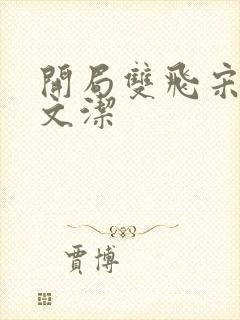 開局雙飛宋
文潔
賈博